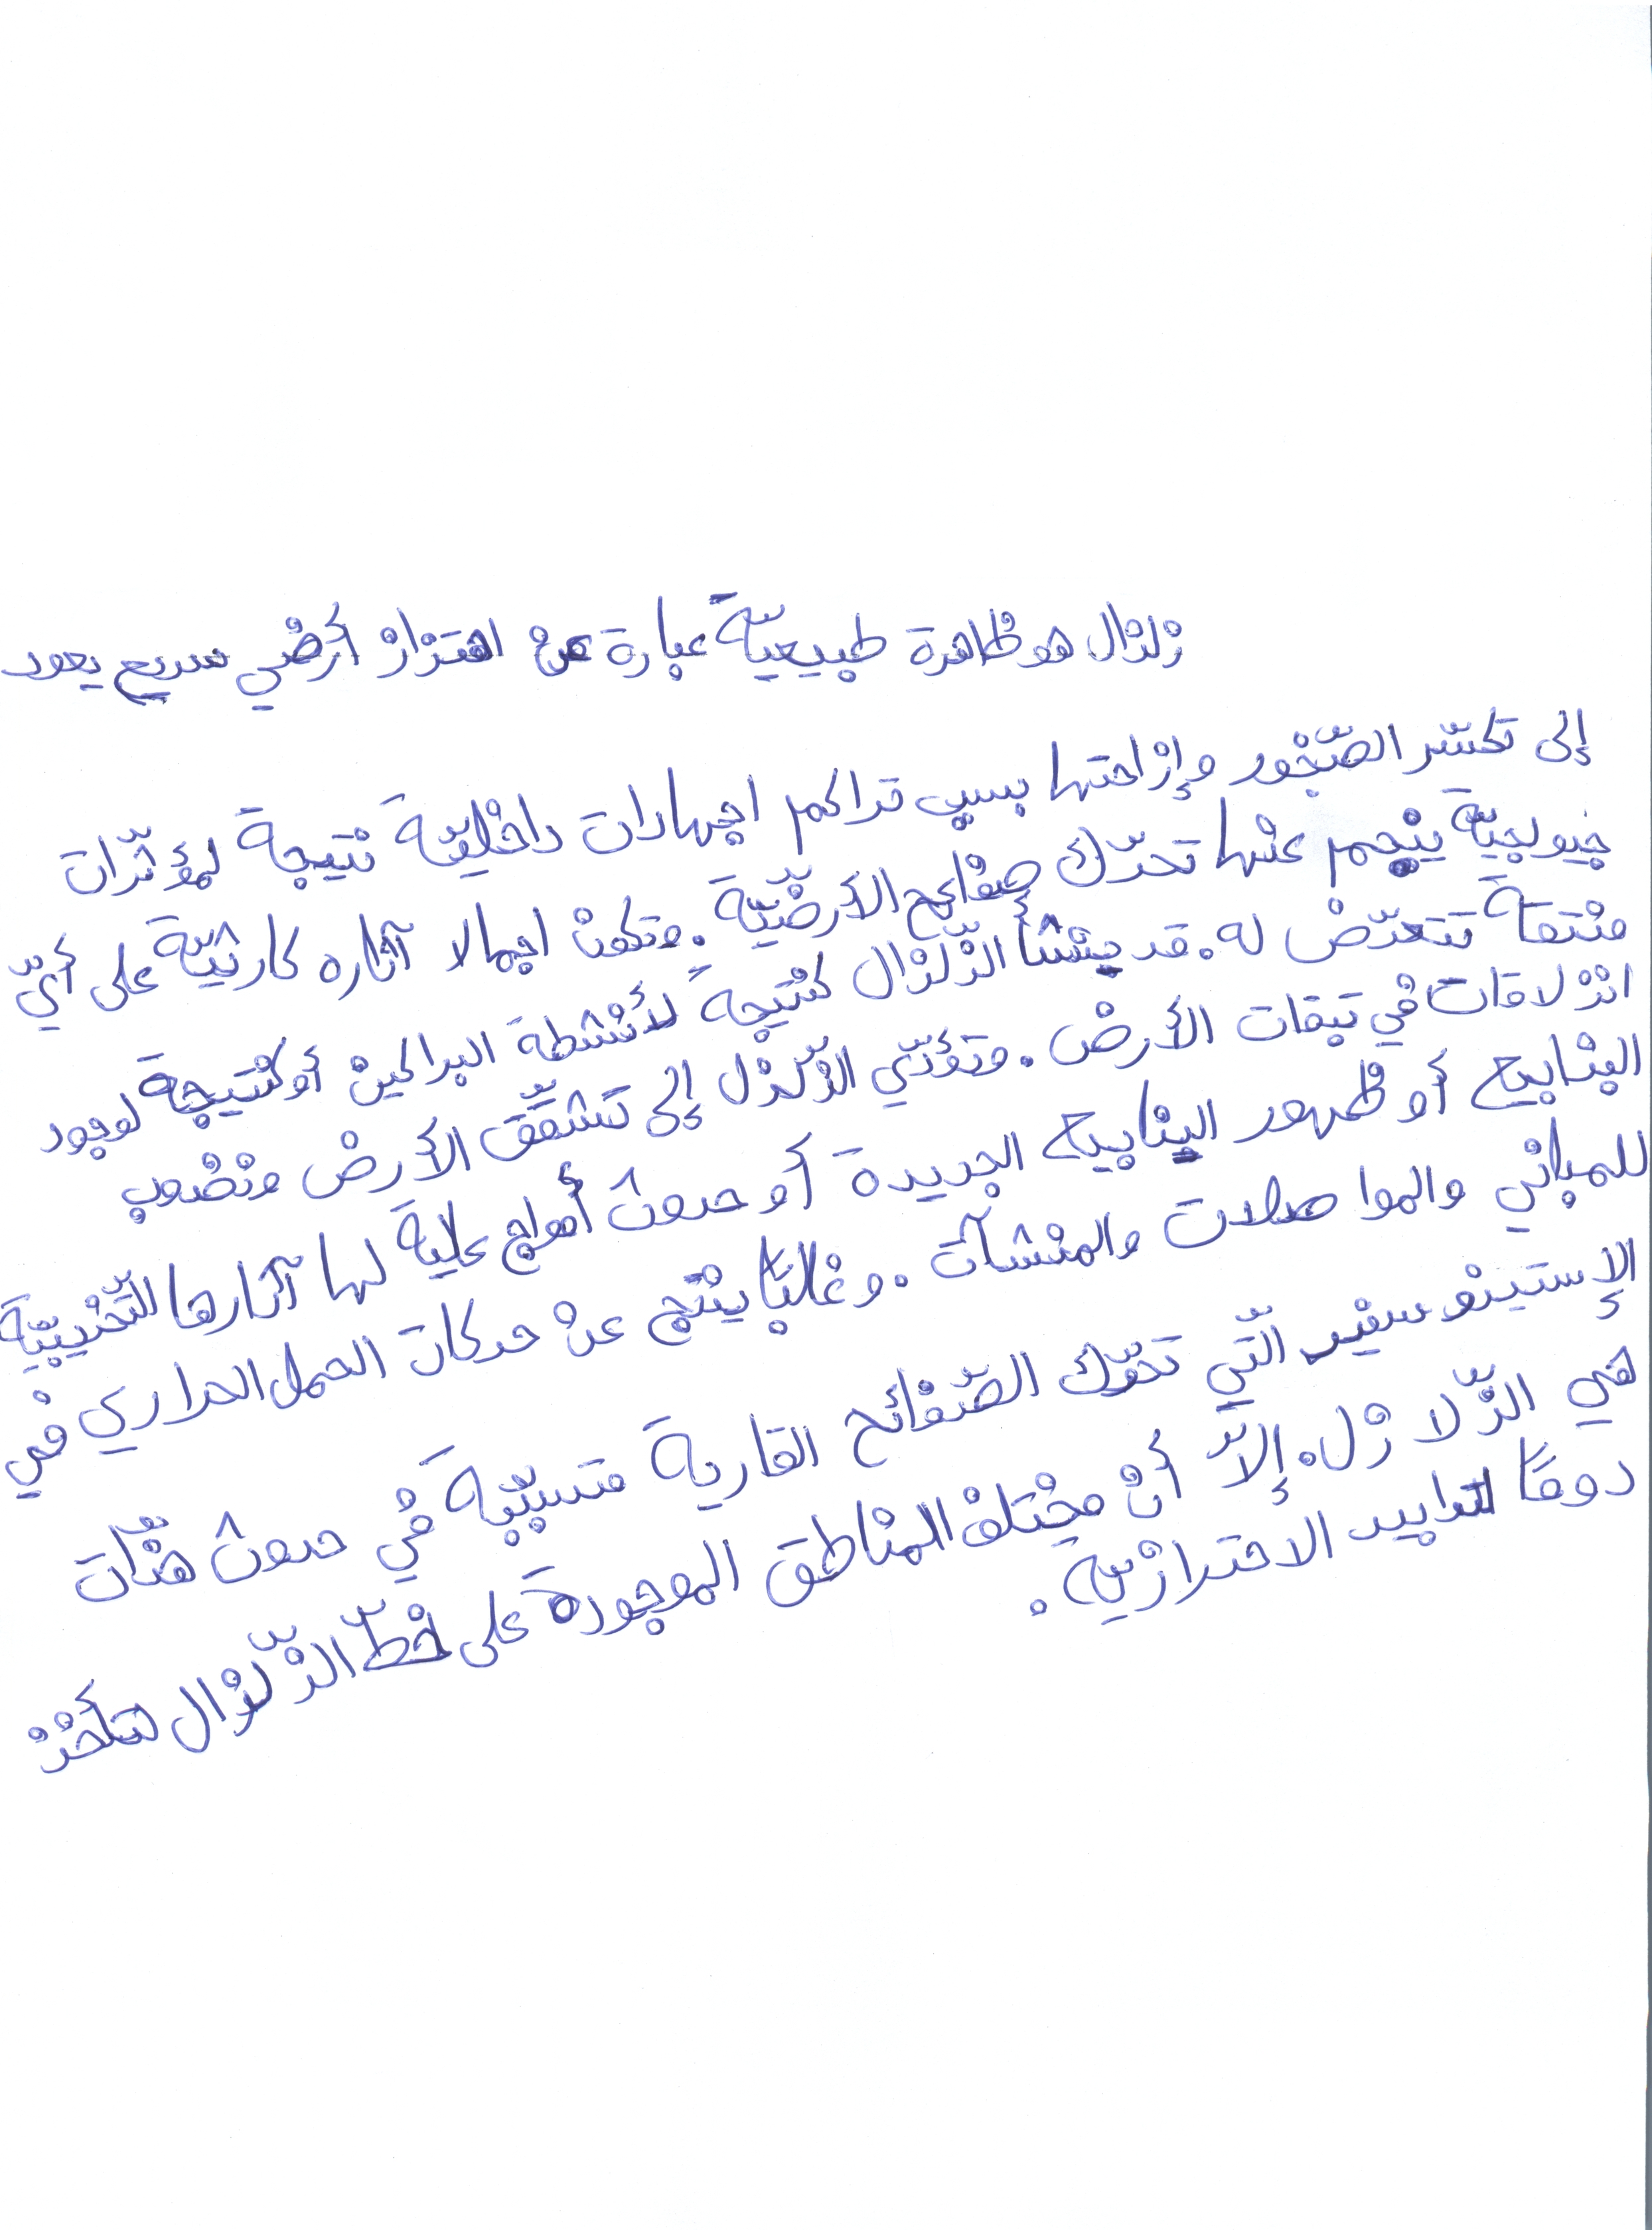 زلزال هو ظاهرة طبيعيّة عبارة عن اهتزاز أرضي سريع يعود
إلى تكسّر الصّخور وإزاحتها بسبب تراكم اجهادات داخليّة نتيجة لمؤثّرات
جيولجيّة ينجم عنها تحرّك صفائح الأرضّيّة. وتكون اجمالا آثاره كارثيّة على أيّ
منتقة تتعرّض له. قد ينشأ الزّلزال كنتيجة لأنشطة البراكين أو كنتيجة لوجود
انزلاقات في تبقات الأرض. وتؤدّي الزّلزل إلى تشقّق الأرض ونضوب
الينابيع أو ظهور الينابيع الجديدة أو حدوث أمواج علية لها آثارها التّخريبيّة
للمباني والمواصلات والمنشآت. وغالبًا ينتج عن حركات الحمل الحراري في
الإستينوسفير الّتي تحرّك الصّفائح القارية متسبّبة في حدوث هزّات
هي الزّلازل. إلاّ أن مختلف المناطق الموجودة على خطّ الزّلزال تتأخذ
دومًا لتدابير الاحترازية.